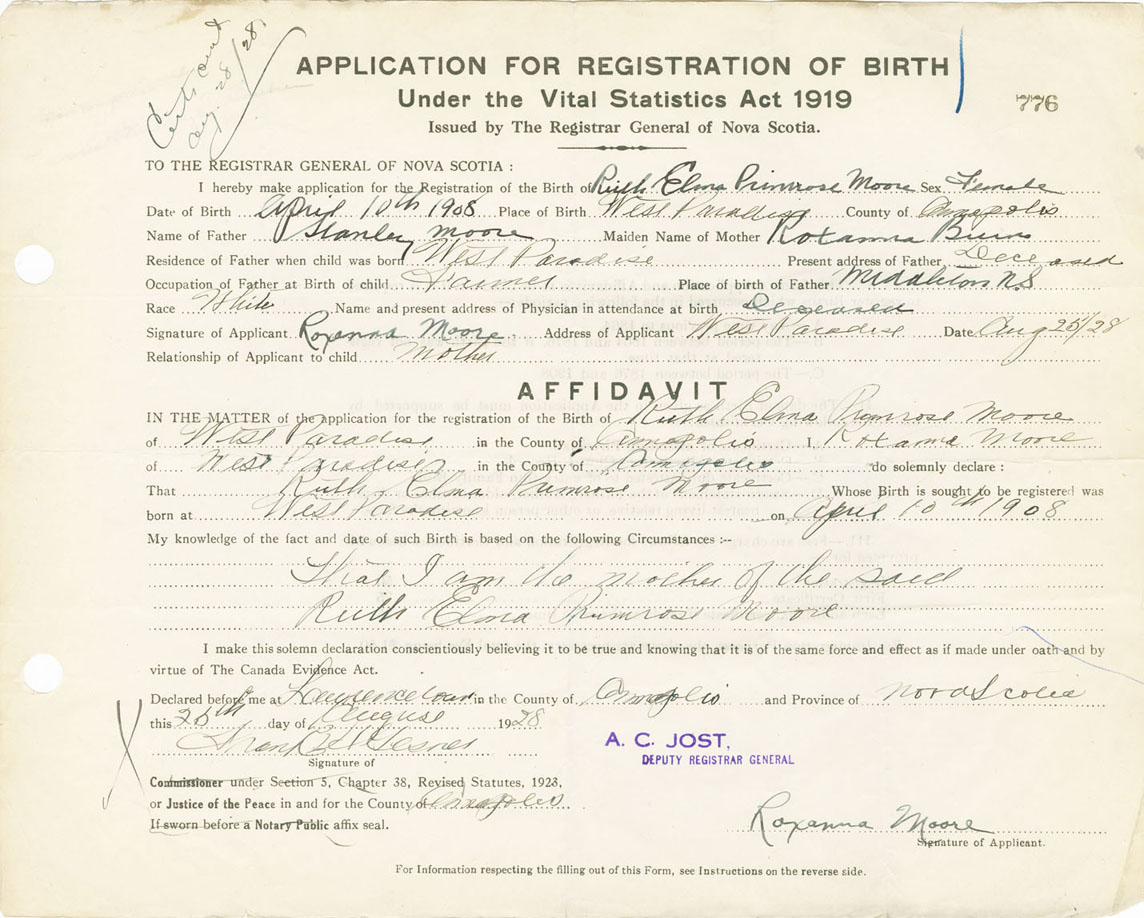 Certs sent
Aug. 28/28.
APPLICATION FOR REGISTRATION OF BIRTH
Under the Vital Statistics Act 1919
776
Issued by The Registrar General of Nova Scotia.
TO THE REGISTRAR GENERAL OF NOVA SCOTIA :
I hereby make application for the Registration of the Birth of Ruth Elma Primrose Moore Sex Female
Date of Birth April 10th 1908 Place of Birth West Paradise County of Annapolis
Name of Father Stanley Moore Maiden Name of Mother Roxanna
Residence of Father when child was born West Paradise Present address of Father Deceased
Occupation of Father at Birth of child Farmer Place of birth of Father Middleton N.S
Race White Name and present address of Physician in attendance at birth Deceased
Signature of Applicant Roxanna Moore Address of Applicant West Paradise Date Aug 25/28
Relationship of Applicant to child Mother
AFFIDAVIT
IN THE MATTER of the application for the registration of the Birth of Ruth Elma Primrose Moore
of West Paradise in the County of Annapolis I, Roxanna Moore
of West Paradise in the County of Annapolis do solemnly declare :
That Ruth Elma Primrose Moore Whose Birth is sought to be registered was
born at West Paradise on April 10th 1908
My knowledge of the fact and date of such Birth is based on the following Circumstances :--
That I am the mother of the said
Ruth Elma Primrose Moore
I make this solemn declaration conscientiously believing it to be true and knowing that it is of the same force and effect as if made under oath and by
virtue of The Canada Evidence Act.
Declared before me at Lawrencetown in the County of Annapolis and Province of Nova Scotia
this 25th day of August 1928
A. C. JOST,
DEPUTY REGISTRAR GENERAL
Signature of
Commissioner under Section 5, Chapter 38, Revised Statutes, 1923,
or Justice of the Peace in and for the County of Annapolis
If sworn before a Notary Public affix seal.
Roxanna Moore
Signature of Applicant.
For Information respecting the filling out of this Form, see Instructions on the reverse side.